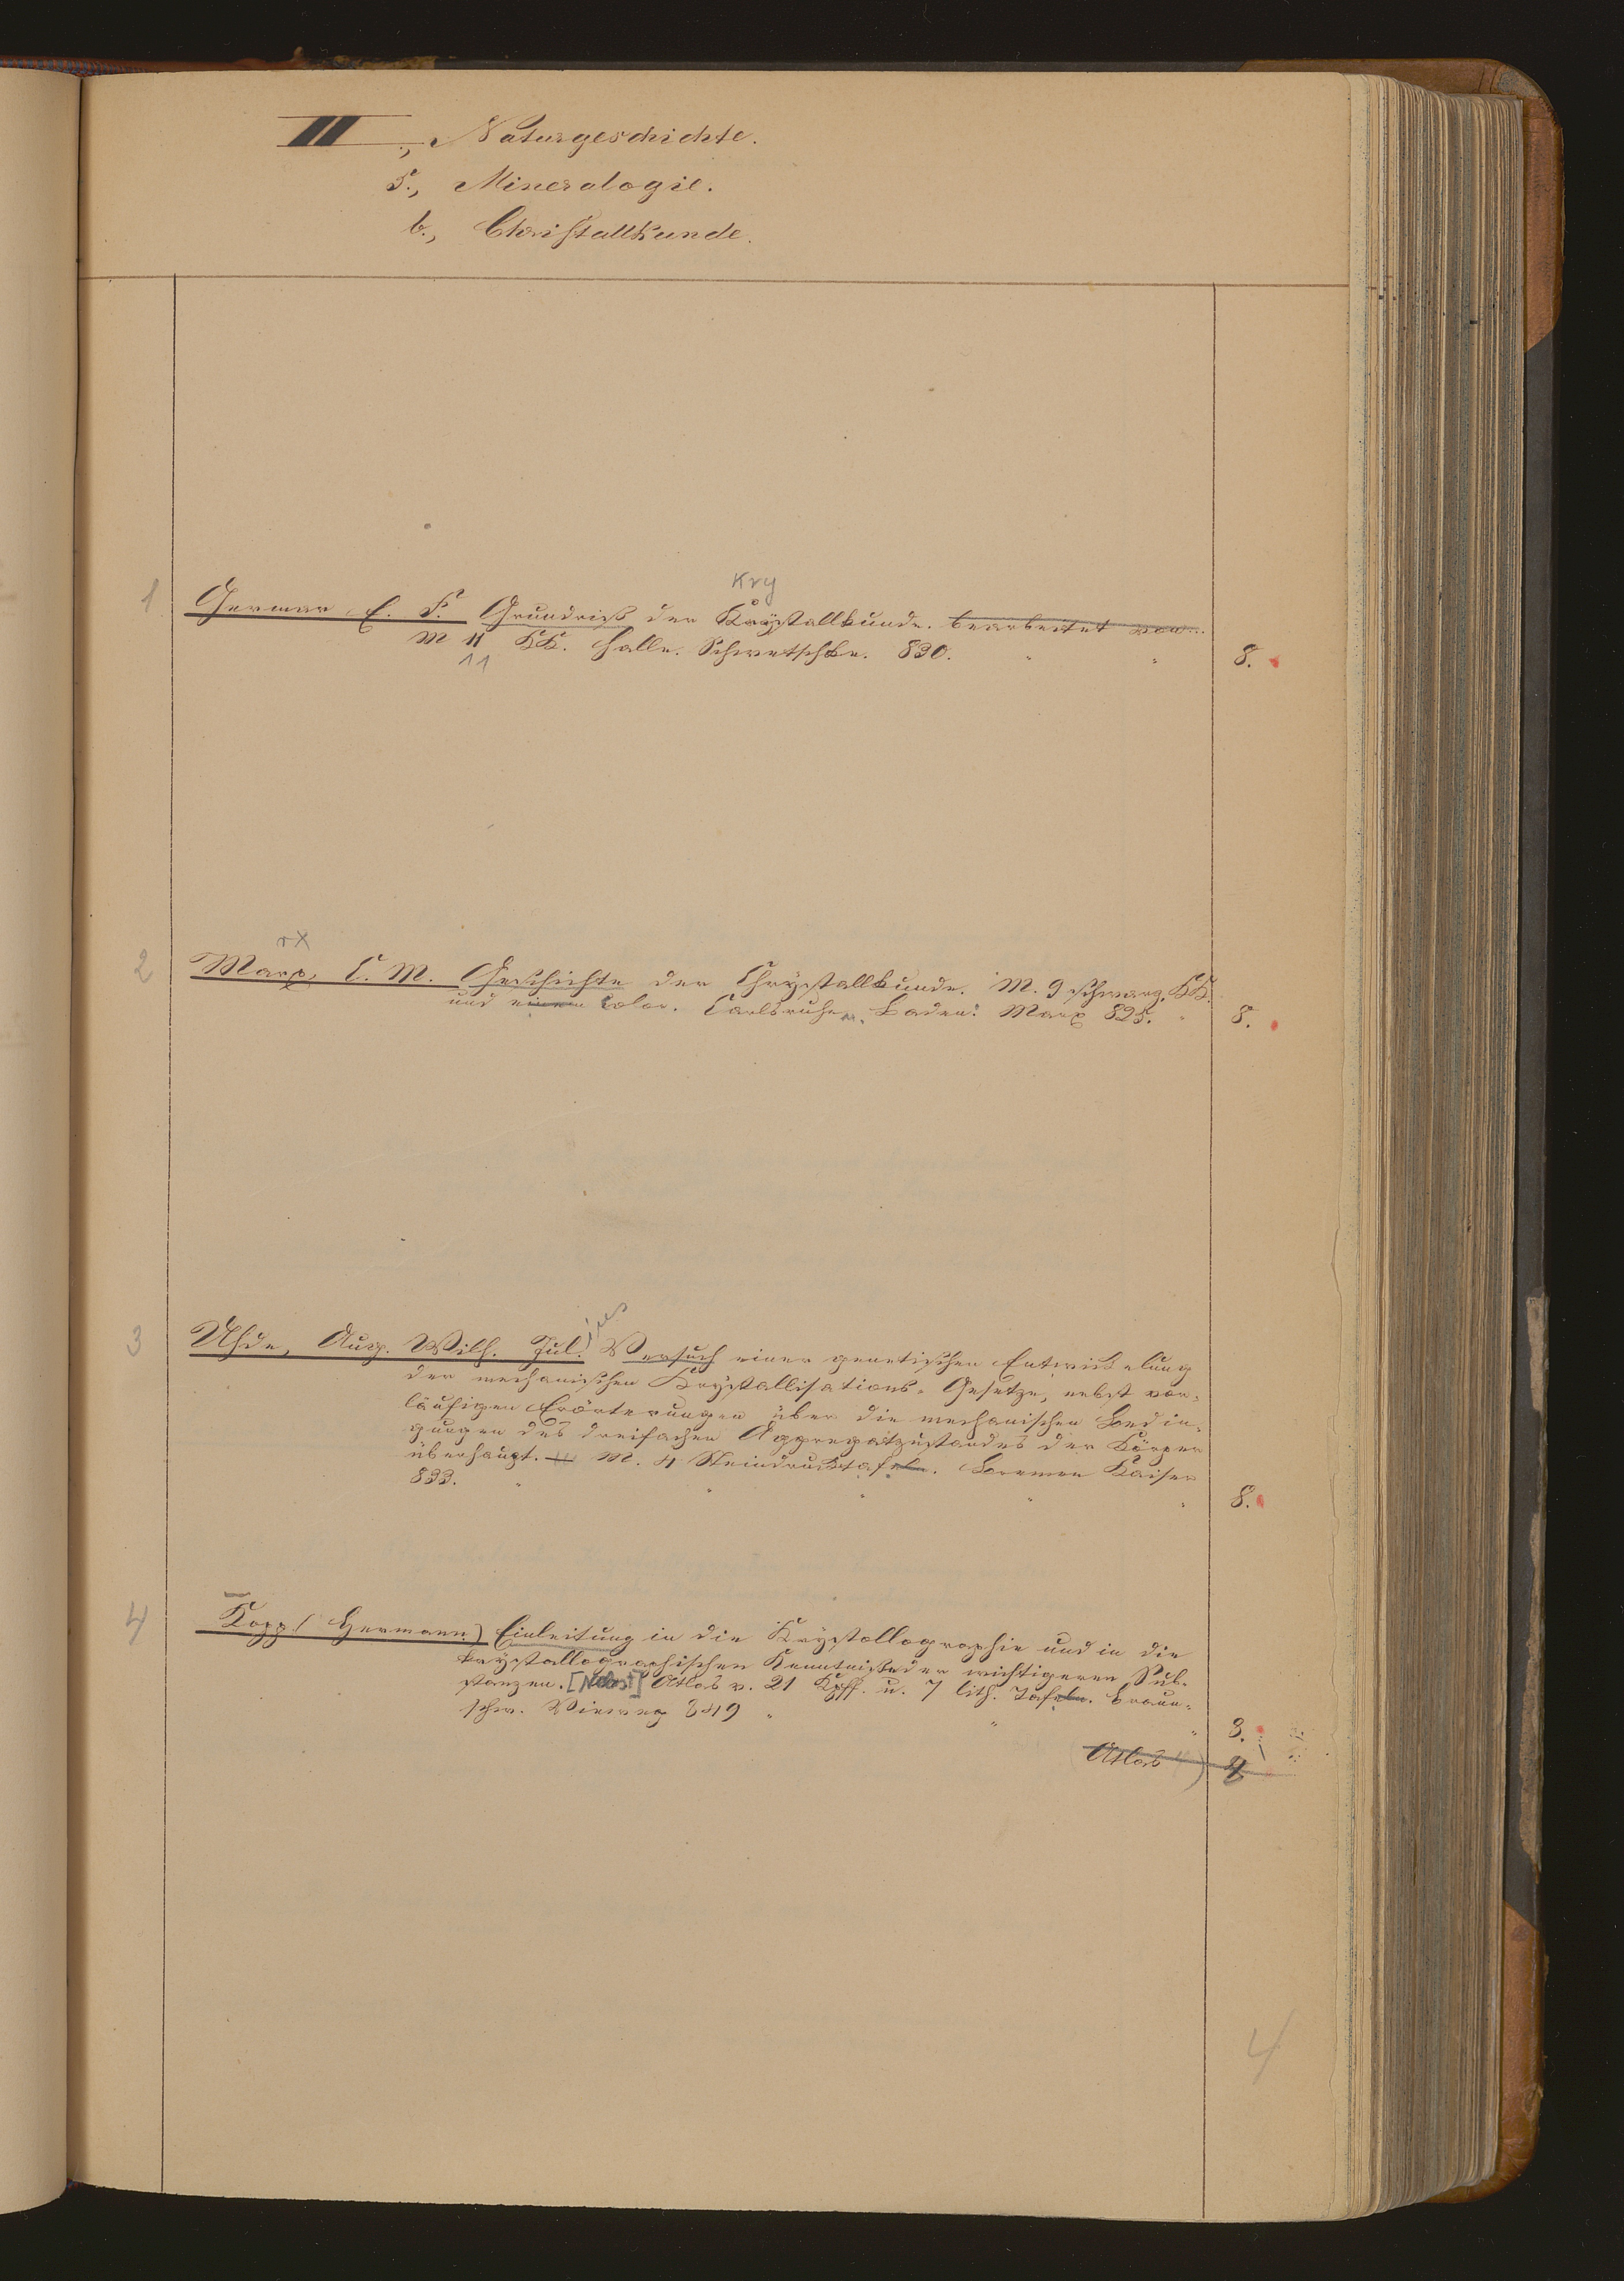 II., Naturgeschichte.
5., Mineralogie.
b., Christallkunde.
Kry
1 Germar, E. F. Grundriß der Krystallkunde. bearbeitet von...
M 11 KK. Halle. Schwetschke. 830. " " 8.
11
rx
2 Marx, C. M. Geschichte der Chrystallkunde. M. 9 schwarz. KK.
und einem color. Carlsruhe u. Baden: Marx 825. " 8.
ius
3 Uhde, Aug. Wilh. Jul. Versuch einer genetischen Entwickelung
der mechanischen Krystallisations-Gesetze, nebst vor-
läufigen Erörterungen über die mechanischen Bedin-
gungen des dreifachen Aggregatzustandes der Körper
überhaupt. M. 4 Steindrucktafeln. Bremen Kaiser
833. " " " " " 8.
4 Kopp (Hermann) Einleitung in die Krystallographie und in die
krystallographischen Kenntniße der wichtigeren Sub-
stanzen. [Nebst] Atlas v. 21 Kpff. u. 7 lith. Tafeln. Braun-
schw. Vieweg 849 " " " 8.
Atlas 4) 4
4